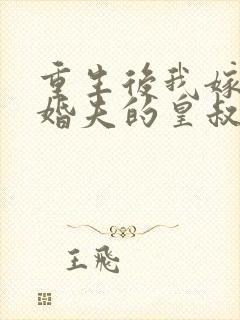 重生後我嫁
婚夫的皇叔
王飛